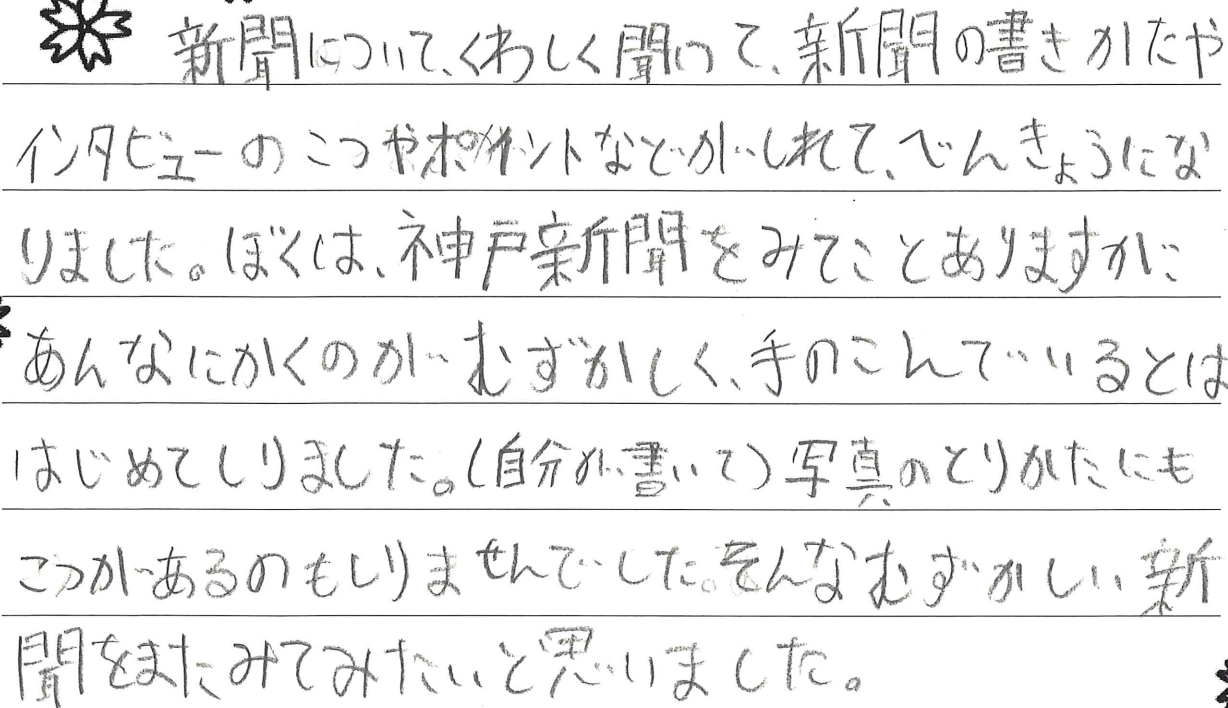 新聞について、くわしく聞いて、新聞の書きかたや
インタビューのこつやポイントなどがしれて、べんきょうにな
りました。ぼくは、神戸新聞をみてことありますがに
あんなにかくのがむずかしく、手のこんでいるとは
はじめてしりました。(自分が書いて)写真のとりかたにも
こつがあるのもしりませんでした。そんなむずかしい、新
聞をまたみてみたいと思いました。